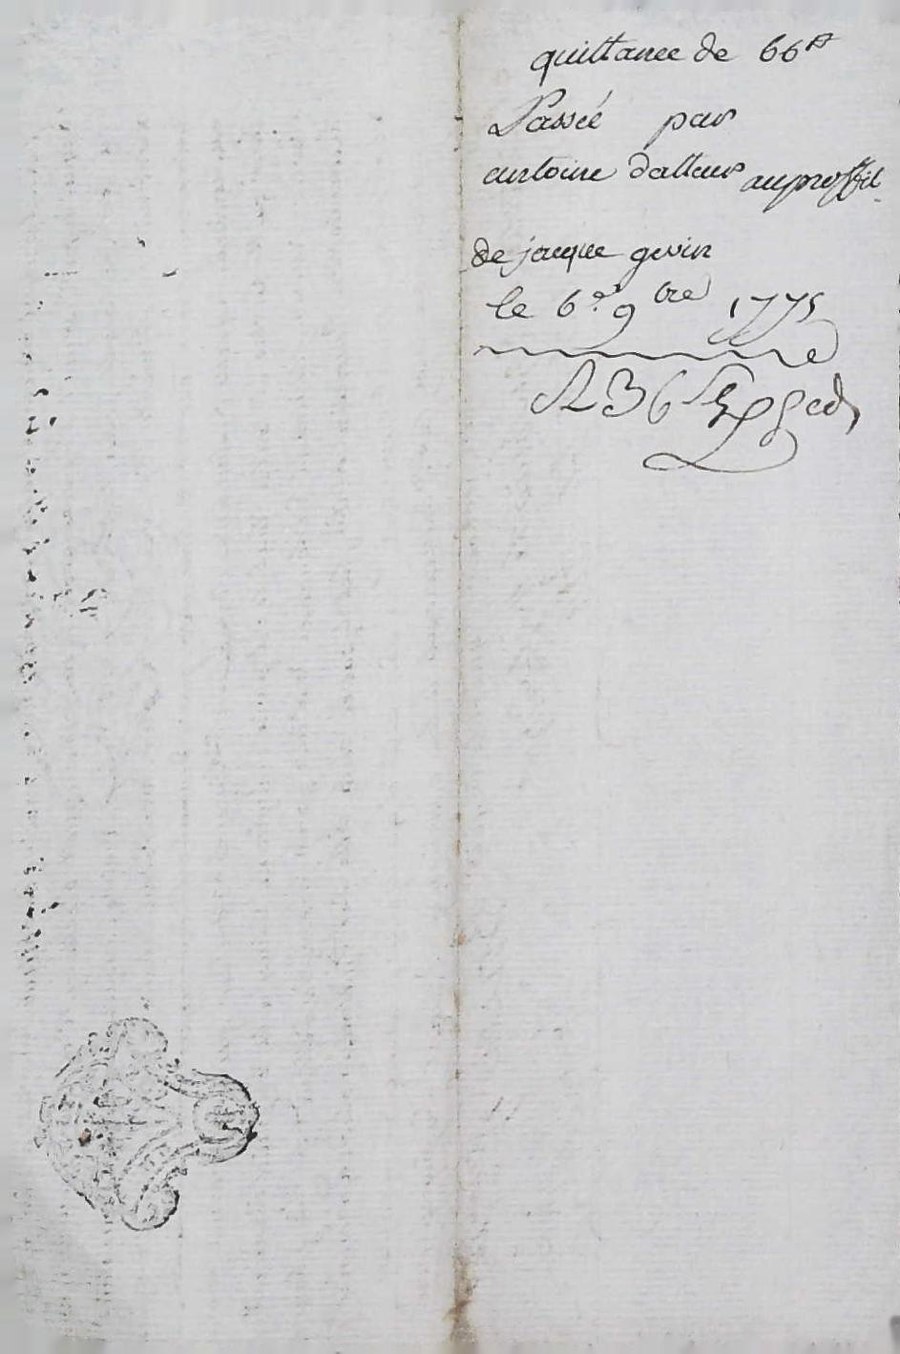 quittance de 66#
Passée par
antoine dattaur au proffit
de jacque gevin
le 6e 9bre 1775